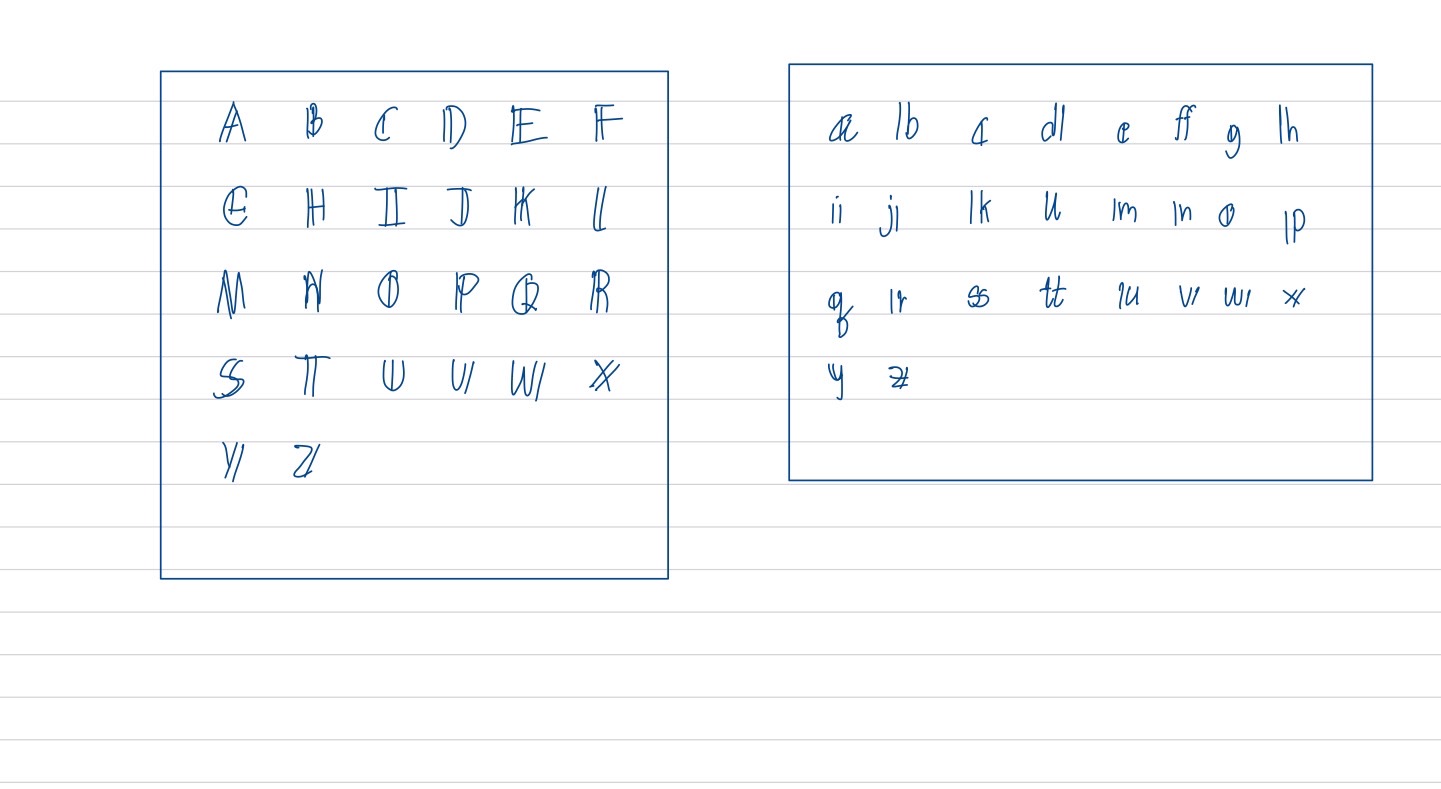 𝔸 𝔹 ℂ 𝔻 𝔼 𝔽
𝔾 ℍ 𝕀 𝕁 𝕂 𝕃
𝕄 ℕ 𝕆 ℙ ℚ ℝ
𝕊 𝕋 𝕌 𝕍 𝕎 𝕏
𝕐 ℤ
𝕒 𝕓 𝕔 𝕕 𝕖 𝕗 𝕘 𝕙
𝕚 𝕛 𝕜 𝕝 𝕞 𝕟 𝕠 𝕡
𝕢 𝕣 𝕤 𝕥 𝕦 𝕧 𝕨 𝕩
𝕪 𝕫